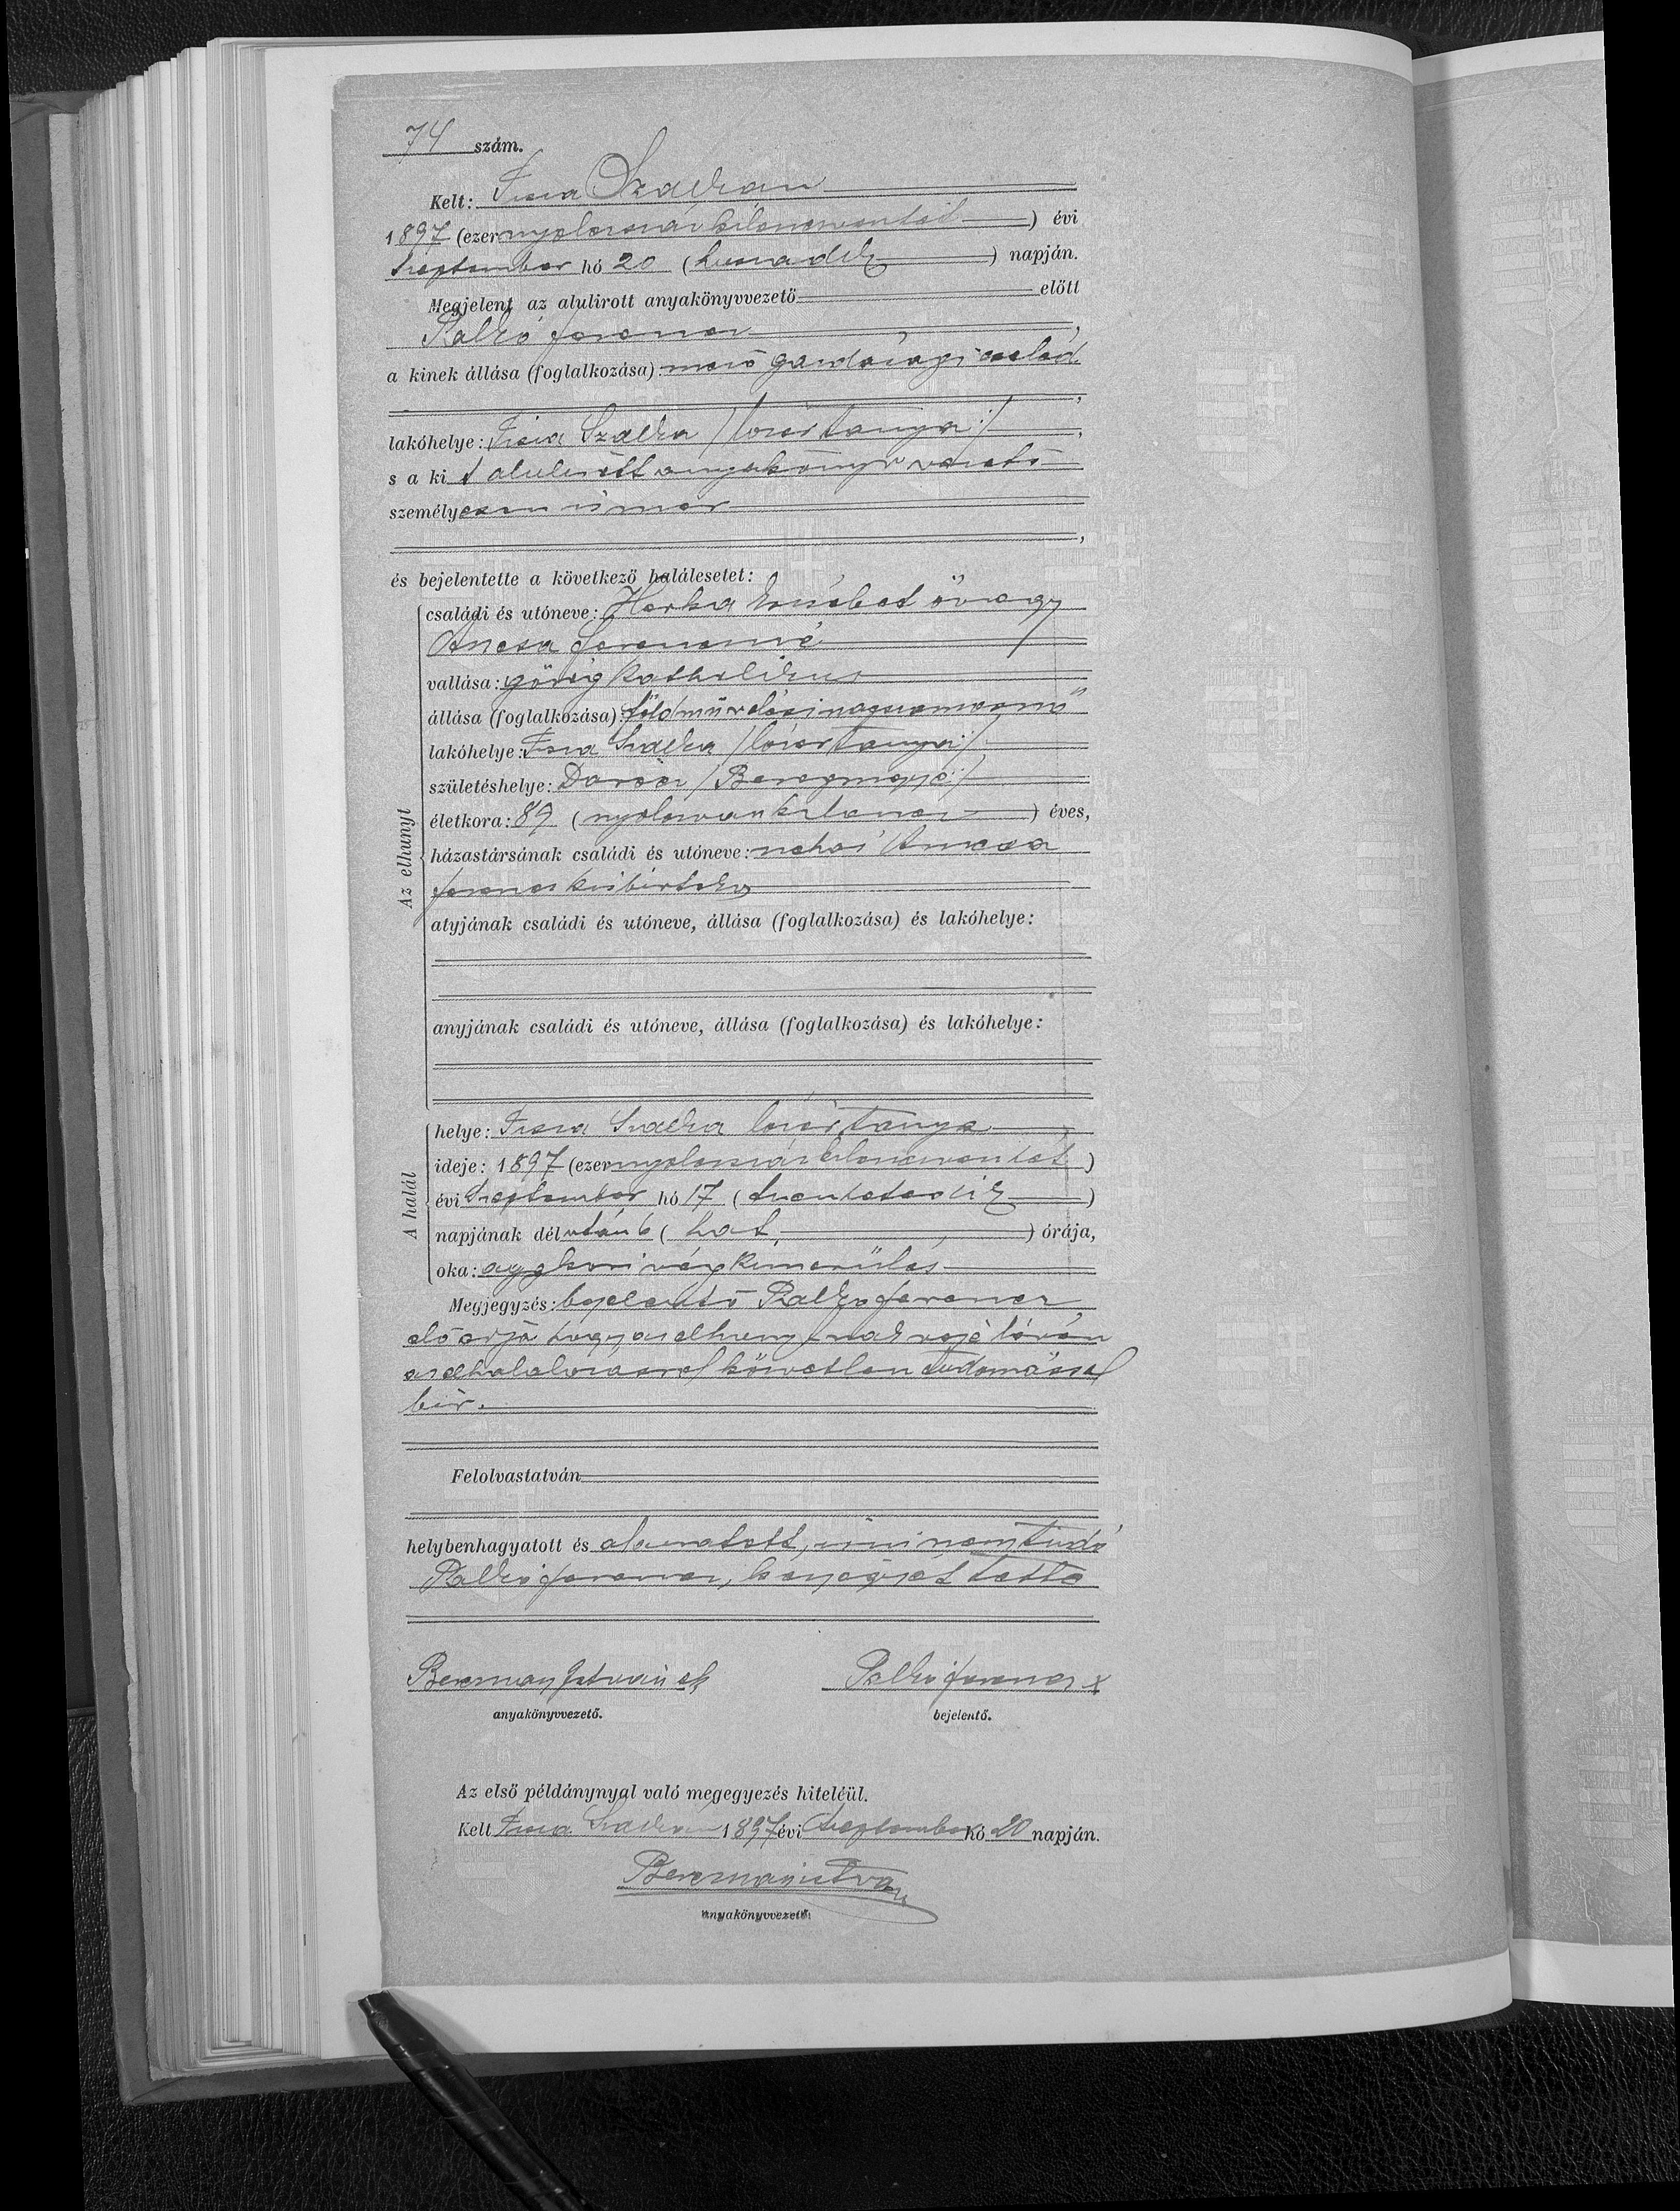 74 szám.
Kelt: Tisza Szalkán
1897 (ezernyolcszázkilencvenhét) évi
Szeptember hó 20 (huszadik) napján.
Megjelent az alulirott anyakönyvvezető előtt
Ferencz,
a kinek állása (foglalkozása): mező gazdasági cseléd
lakóhelye: Tisza Szalka / tanya /,
s a kit alulirott anyakönyvvezető
személyesen ismer
és bejelentette a következő halálesetet:
Az elhunyt
családi és utóneve: Horka Erzsébet özvegy
Ancsa Ferenczné
vallása: görög katholikus
állása (foglalkozása): földművelési napszámosnő
lakóhelye: Tisza Szalka / tanya /
születéshelye: Darócz / Beregmegye /
életkora: 89 (nyolczvankilencz) éves,
házastársának családi és utóneve: néhai Ancsa
Ferencz kisbirtokos
atyjának családi és utóneve, állása (foglalkozása) és lakóhelye:
anyjának családi és utóneve, állása (foglalkozása) és lakóhelye:
A halál
helye: Tisza Szalka tanya
ideje: 1897 (ezernyolcszázkilencvenhét)
évi Szeptember hó 17 (tizenhetedik)
napjának délután 6 (hat) órája,
oka: aggkori végkimerülés
Megjegyzés: bejelentő Ferencz
előadja hogy az elhunytnak veje lévén
az elhalálozásról közvetlen tudomással
bír.
Felolvastatván
helybenhagyatott és aláiratott, írni nem tudó
Ferencz, kézjegyét tette
Berzmay István sk Ferencz x
anyakönyvvezető. bejelentő.
Az első példánynyal való megegyezés hiteléül.
Kelt Tisza Szalkán 1897 évi Szeptember hó 20 napján.
Berzmay István
anyakönyvvezető.